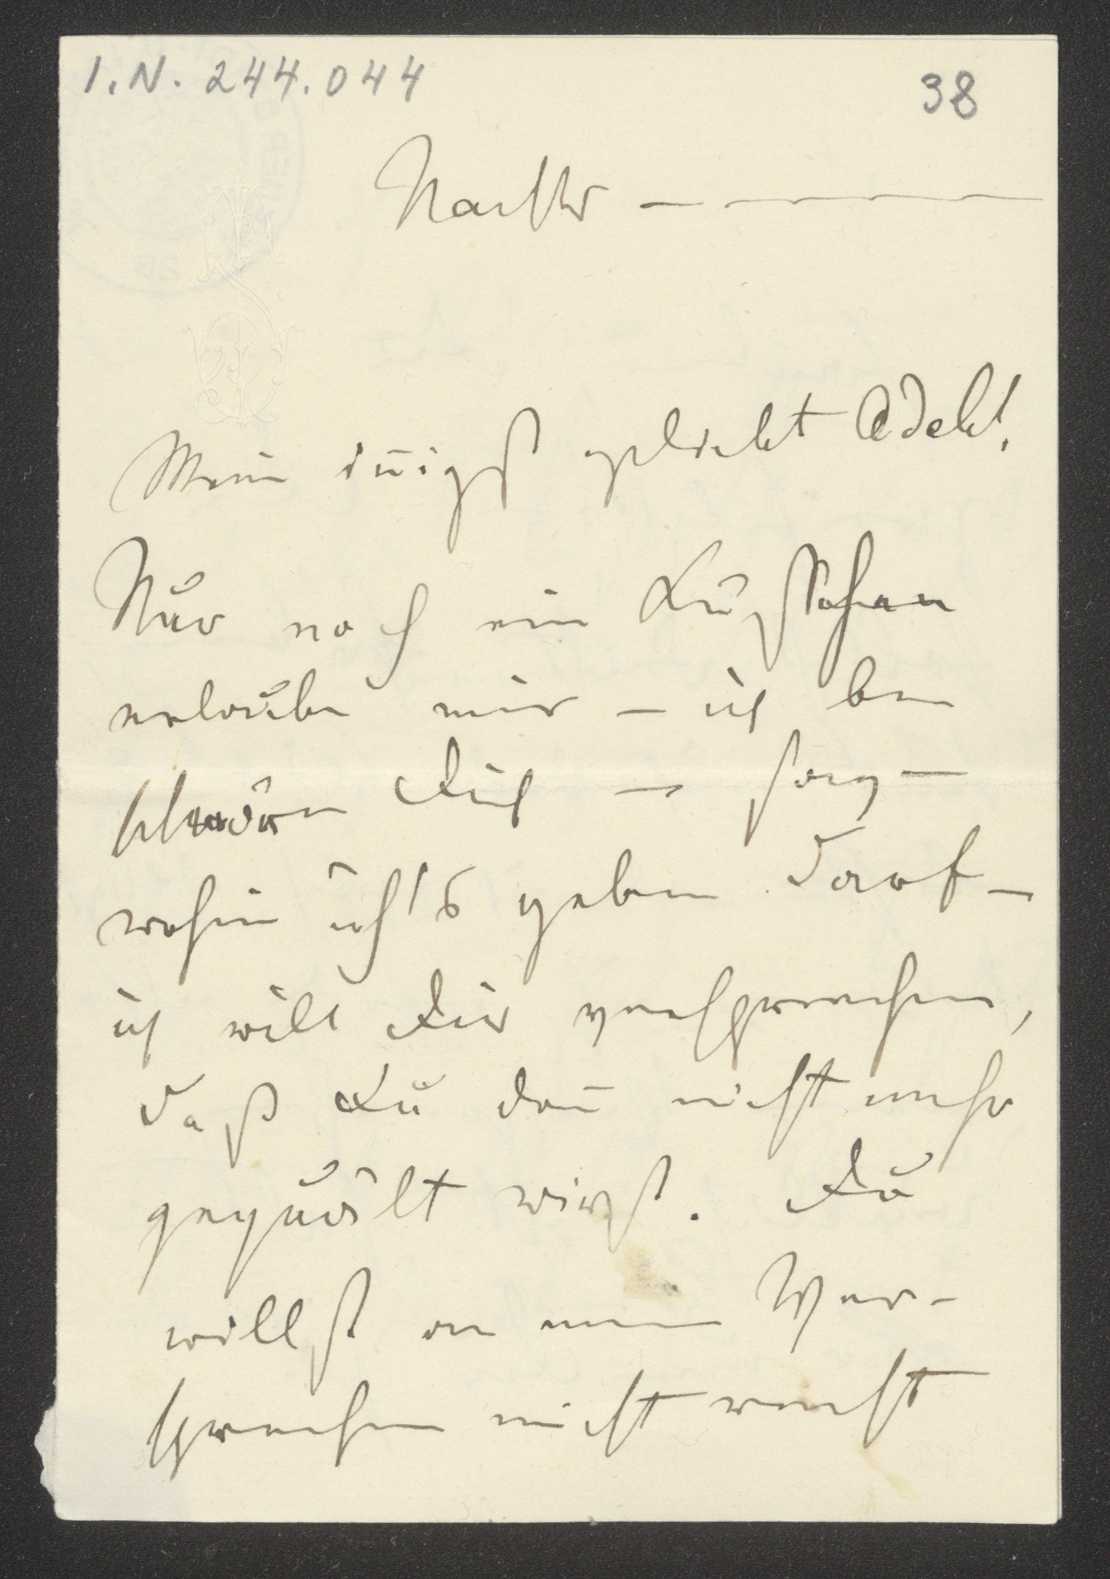 I.N. 244.044
38
Nachts —
Mein in̄igst geliebt Adele!
Nur noch ein Küßchen
erlaube mir – ich be
schwöre Dich – sag –
wohin ich's geben darf –
ich will Dir versprechen,
daß Du dan̄ nicht mehr
gequält wirst. Du
willst an mein Ver-
sprechen nicht recht